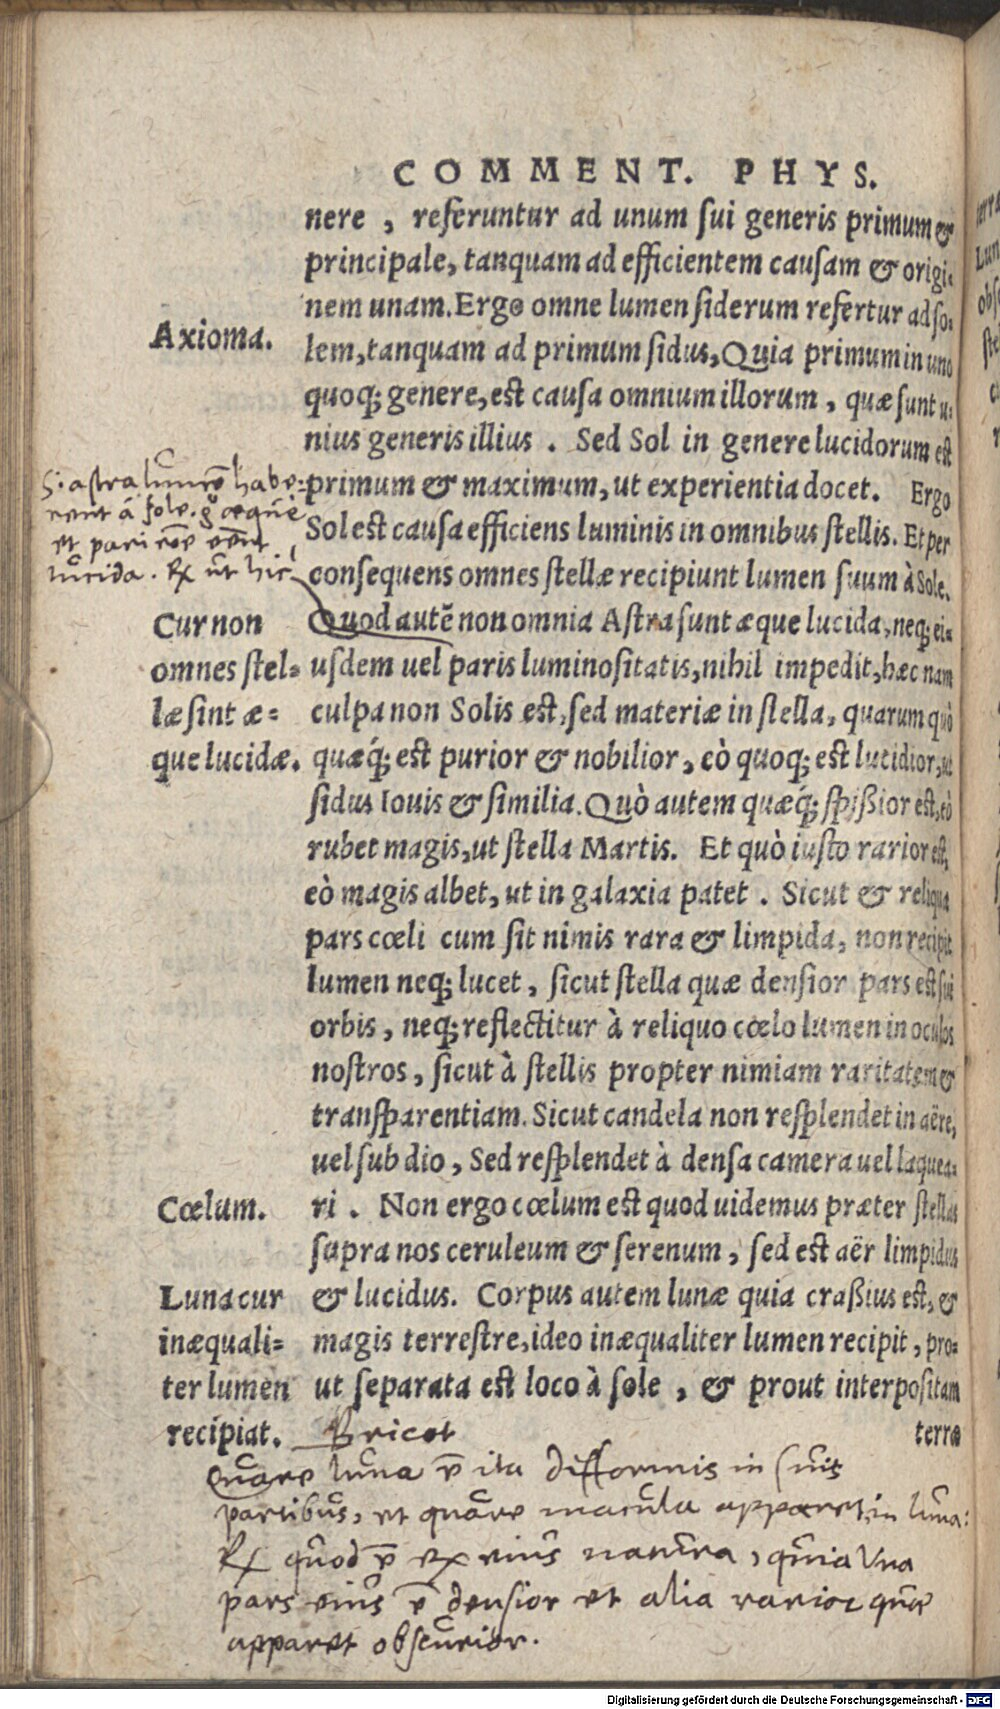 COMMENT. PHYS.
nere , referuntur ad unum sui generis primum &
principale, tanquam ad efficientem causam & origi-
nem unam. Ergo omne lumen siderum refertur ad so-
Axioma.
lem, tanquam ad primum sidus, Quia primum in uno
quoq; genere, est causa omnium illorum , quæ sunt u-
nius generis illius . Sed Sol in genere lucidorum est
primum & maximum, ut experientia docet. Ergo
Sol est causa efficiens luminis in omnibus stellis. Et per
consequens omnes stellæ recipiunt lumen suum à Sole.
Si astra lumē habe-
rent á sole. g° æque
et pari
lucida. Rx ut hic
Cur non
omnes stel=
læ sint æ=
que lucidæ.
Quod autē non omnia Astra sunt æque lucida, neq; ei-
usdem uel paris luminositatis, nihil impedit, hæc nam
culpa non Solis est, sed materiæ in stella, quarum quò
quæq́; est purior & nobilior, eò quoq; est lucidior, ut
sidus Iouis & similia. Quò autem quæq́; spißior est, eò
rubet magis, ut stella Martis. Et quò iusto rarior est,
eò magis albet, ut in galaxia patet . Sicut & reliqua
pars cœli cum sit nimis rara & limpida, non recipit
lumen neq; lucet , sicut stella quæ densior pars est sui
orbis , neq; reflectitur à reliquo cœlo lumen in oculos
nostros , sicut à stellis propter nimiam raritatem &
transparentiam. Sicut candela non resplendet in aëre,
uel sub dio , Sed resplendet à densa camera uel laquea-
Cœlum.
ri . Non ergo cœlum est quod uidemus præter stellas
supra nos ceruleum & serenum , sed est aër limpidus
& lucidus. Corpus autem lunæ quia craßius est, &
magis terrestre, ideo inæqualiter lumen recipit , pro-
ut separata est loco à sole , & prout interpositam
Luna cur
inæquali=
ter lumen
recipiat.
terræ
Bricot
Quare luna ē ita difformis in suis
partibus, et quare macula apparet in luna:
Rx quod ē ex eius natura, quia una
pars eius ē densior et alia rarior quæ
apparet obscurior.
Digitalisierung gefördert durch die Deutsche Forschungsgemeinschaft - DFG